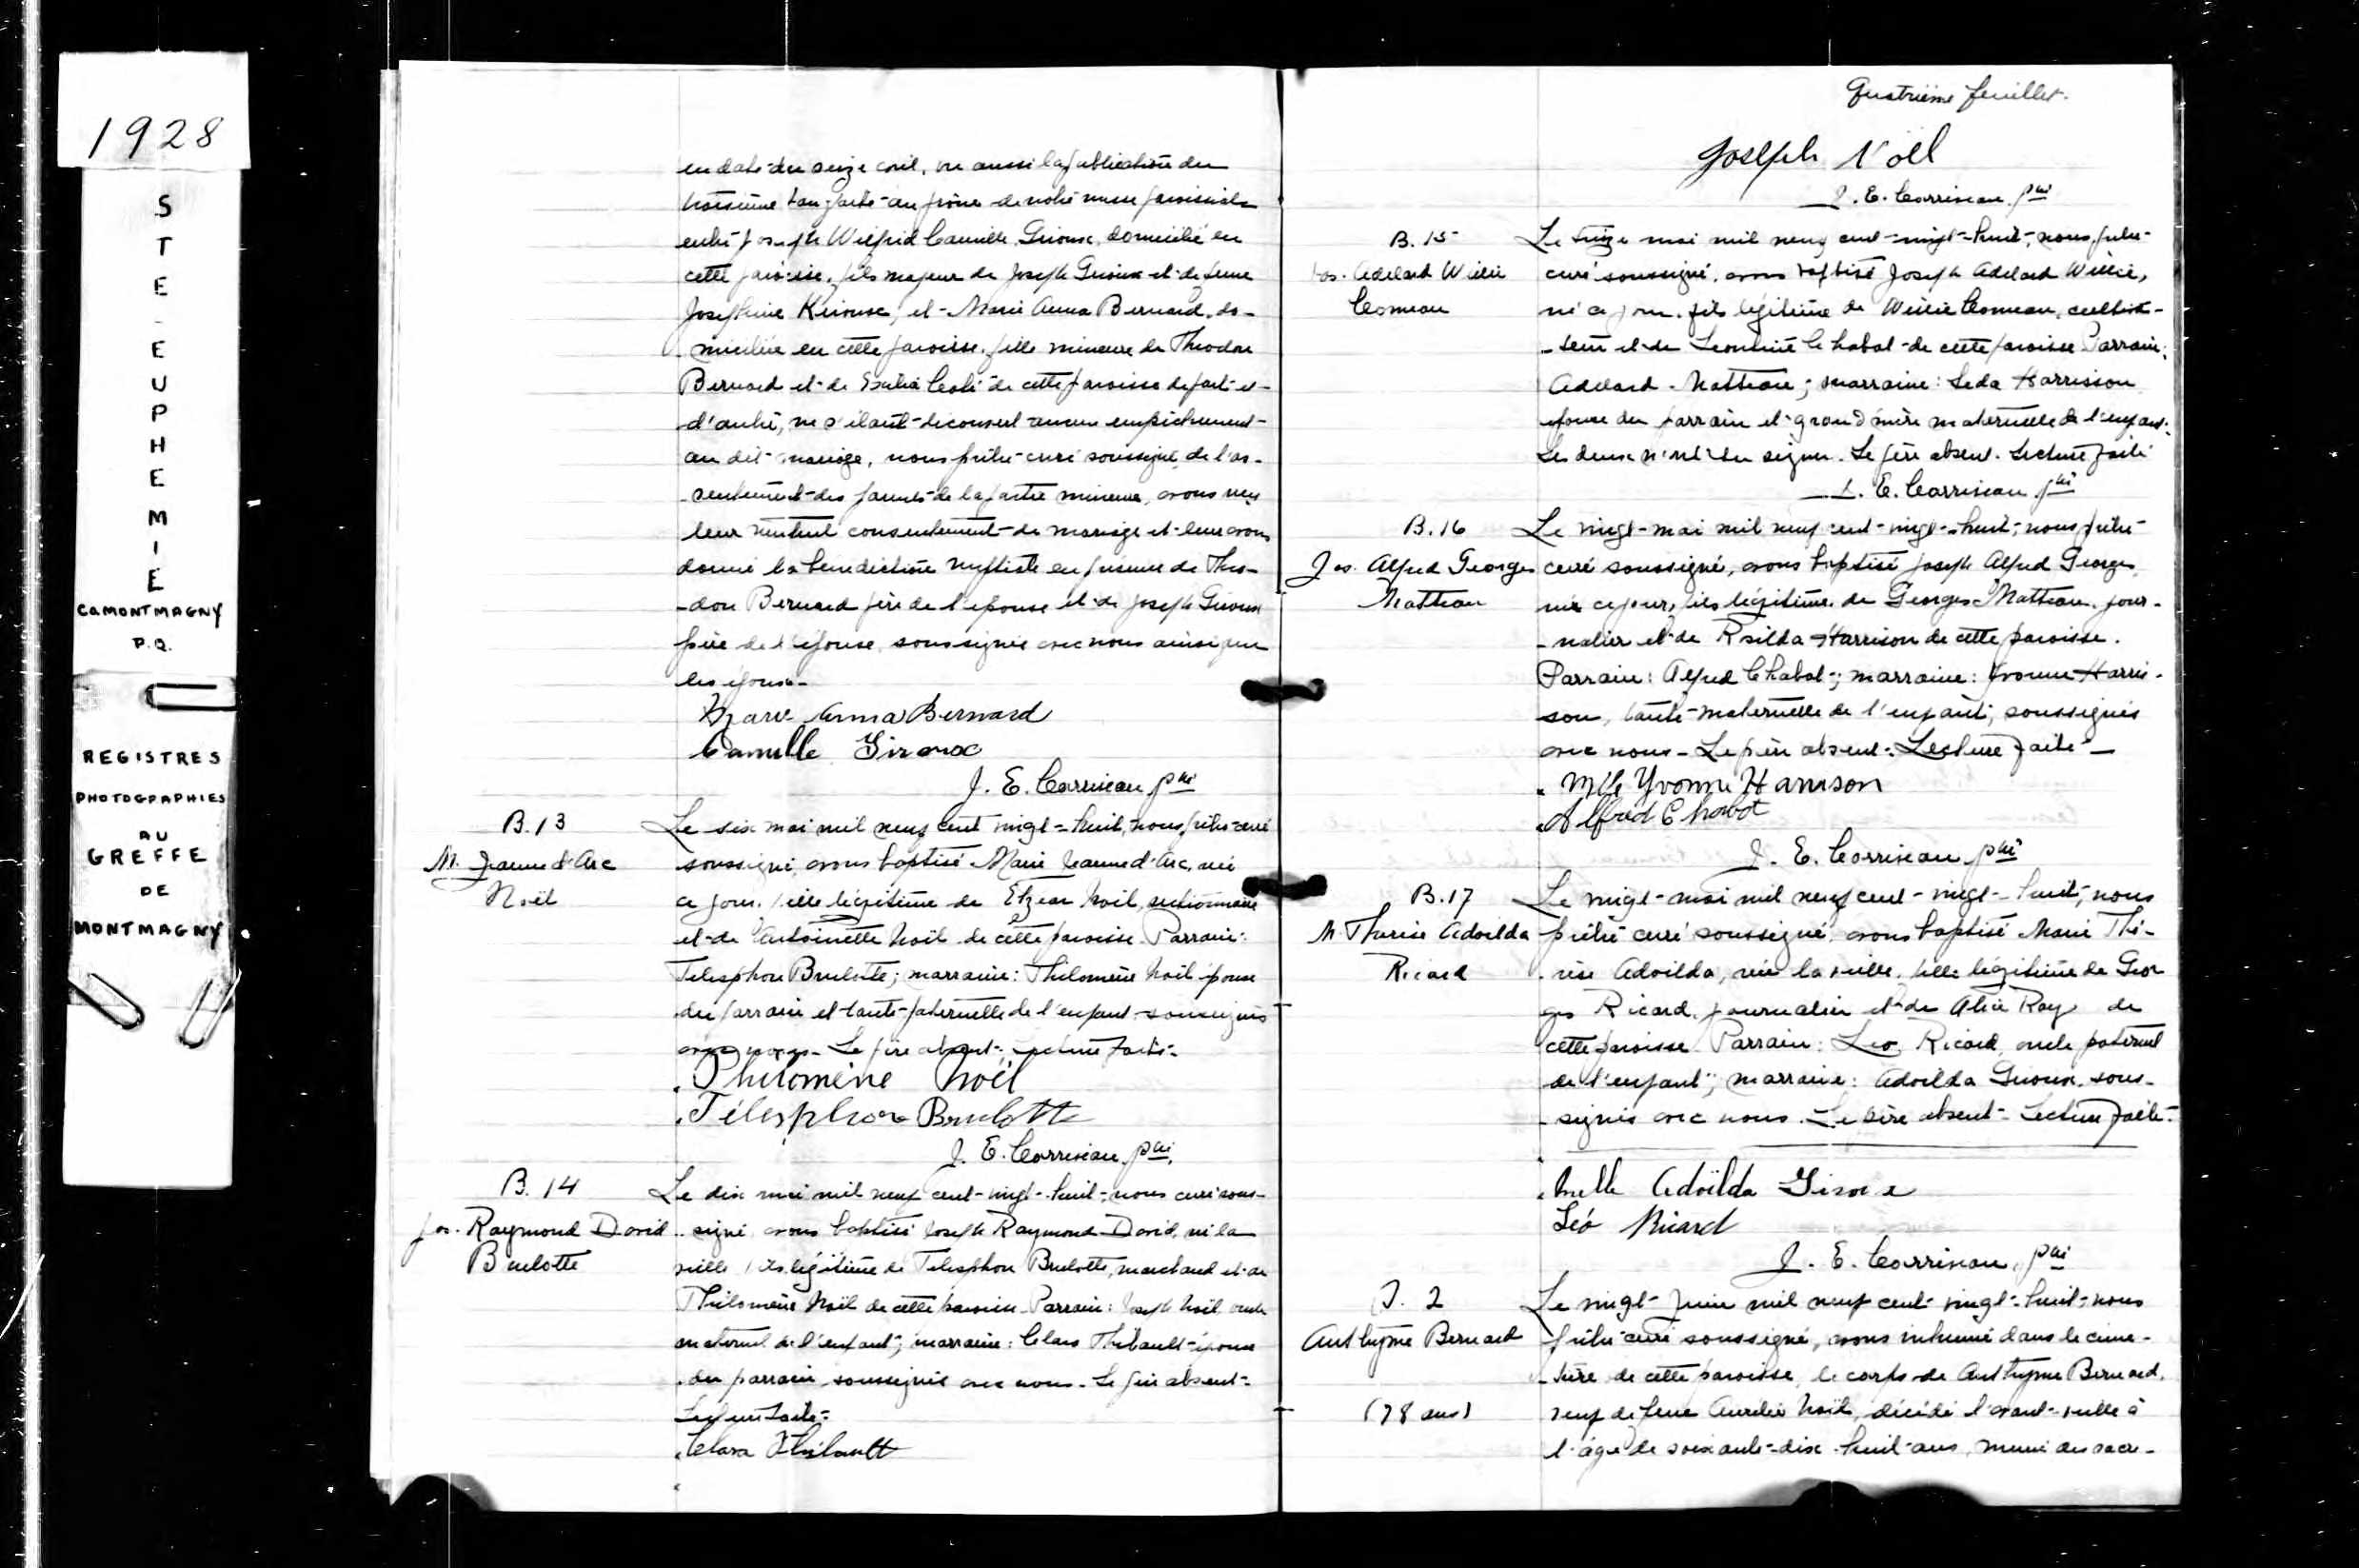 1928
S
T
E
-
E
U
P
H
E
M
I
E
Co MONTMAGNY
P.Q.
REGISTRES
PHOTOGRAPHIES
AU
GREFFE
DE
MONTMAGNY
en date du seize avril, vu aussi la publication du
troisième ban faite au prône de notre messe paroissiale
entre Joseph Wilfrid Camille Giroux, domicilié en
cette paroisse, fils majeur de Joseph Giroux et de feue
Josephine Kirouac, et Marie Anna Bernard, do-
miciliée en cette paroisse, fille mineure de Theodore
Bernard et de de cette paroisse de part et
d'autre, ne s'étant découvert aucun empêchement
au dit mariage, nous prêtre curé soussigné, de l'as-
sentiment des parents de la partie mineure, avons reçu
leur mutuel consentement de mariage et leur avons
donné la bénédiction nuptiale en présence de Théo-
dore Bernard père de l'épouse et de Joseph Giroux
père de l'époux, soussignés avec nous ainsi que
les époux.
Marie Anna Bernard
Camille Giroux
J. E. Corriveau ptre
B. 13
M. Jeanne d'Arc
Noël
Le six mai mil neuf cent vingt-huit, nous, prêtre curé
soussigné, avons baptisé Marie Jeanne d'Arc, née
ce jour, fille légitime de Elzear Noël, sectionnaire
et de Antoinette Noël de cette paroisse. Parrain:
Telesphore Brulotte; marraine: Philomène Noël épouse
du parrain et tante paternelle de l'enfant soussignés
avec nous. Le père absent. Lecture faite.
Philomène Noël
Télesphore Brulotte
J. E. Corriveau, ptre
B. 14
Jos. Raymond David
Brulotte
Le dix mai mil neuf cent vingt-huit, nous curé sous-
signé, avons baptisé Joseph Raymond David, né la
veille, fils légitime de Telesphore Brulotte, marchand et de
Philomène Noël de cette paroisse. Parrain: Joseph Noël oncle
maternel de l'enfant; marraine: Clara Thibault épouse
du parrain soussignés avec nous. Le père absent.
Lecture faite.
Clara Thibault
Quatrième feuillet.
Joseph Noël
J. E. Corriveau ptre
B. 15
Jos. Adelard Willie
Comeau
Le mai mil neuf cent vingt-huit, nous, prêtre
curé soussigné, avons baptisé Joseph Adelard Willie,
né ce jour, fils légitime de Willie Comeau, cultiva-
teur et de Leontine Chabot de cette paroisse. Parrain:
Adelard Natteau; marraine: Leda Harrisson
épouse du parrain et grand'mère maternelle de l'enfant.
Les deux n'ont su signer. Le père absent. Lecture faite
J. E. Corriveau ptre
B. 16
Jos. Alfred Georges
Natteau
Le vingt mai mil neuf cent vingt-huit, nous prêtre
curé soussigné, avons baptisé Joseph Alfred Georges,
né ce jour, fils légitime de Georges Natteau, jour-
nalier et de Rosilda Harrison de cette paroisse.
Parrain: Alfred Chabot; marraine: Yvonne Harri-
son, tante maternelle de l'enfant, soussignés
avec nous. Le père absent. Lecture faite
Mlle Yvonne Harrison
Alfred Chabot
J. E. Corriveau ptre
B. 17
M. Thérèse Adoilda
Ricard
Le vingt mai mil neuf cent vingt-huit, nous
prêtre curé soussigné, avons baptisé Marie Thé-
rèse Adoilda, née la veille, fille légitime de Geor
ges Ricard, journalier et de Alice Roy de
cette paroisse. Parrain: Leo Ricard, oncle paternel
de l'enfant; marraine: Adoilda Giroux, sous-
signés avec nous. Le père absent. Lecture faite.
Melle Adoïlda Giroux
Léo Ricard
J. E. Corriveau, ptre
S. 2
Anthyme Bernard
(78 ans)
Le vingt juin mil neuf cent vingt-huit, nous
prêtre curé soussigné, avons inhumé dans le cime-
tière de cette paroisse, le corps de Anthyme Bernard,
veuf de feue Aurélie Noël, décédé l'avant-veille à
l'âge de soixante-dix-huit ans, muni des sacre-